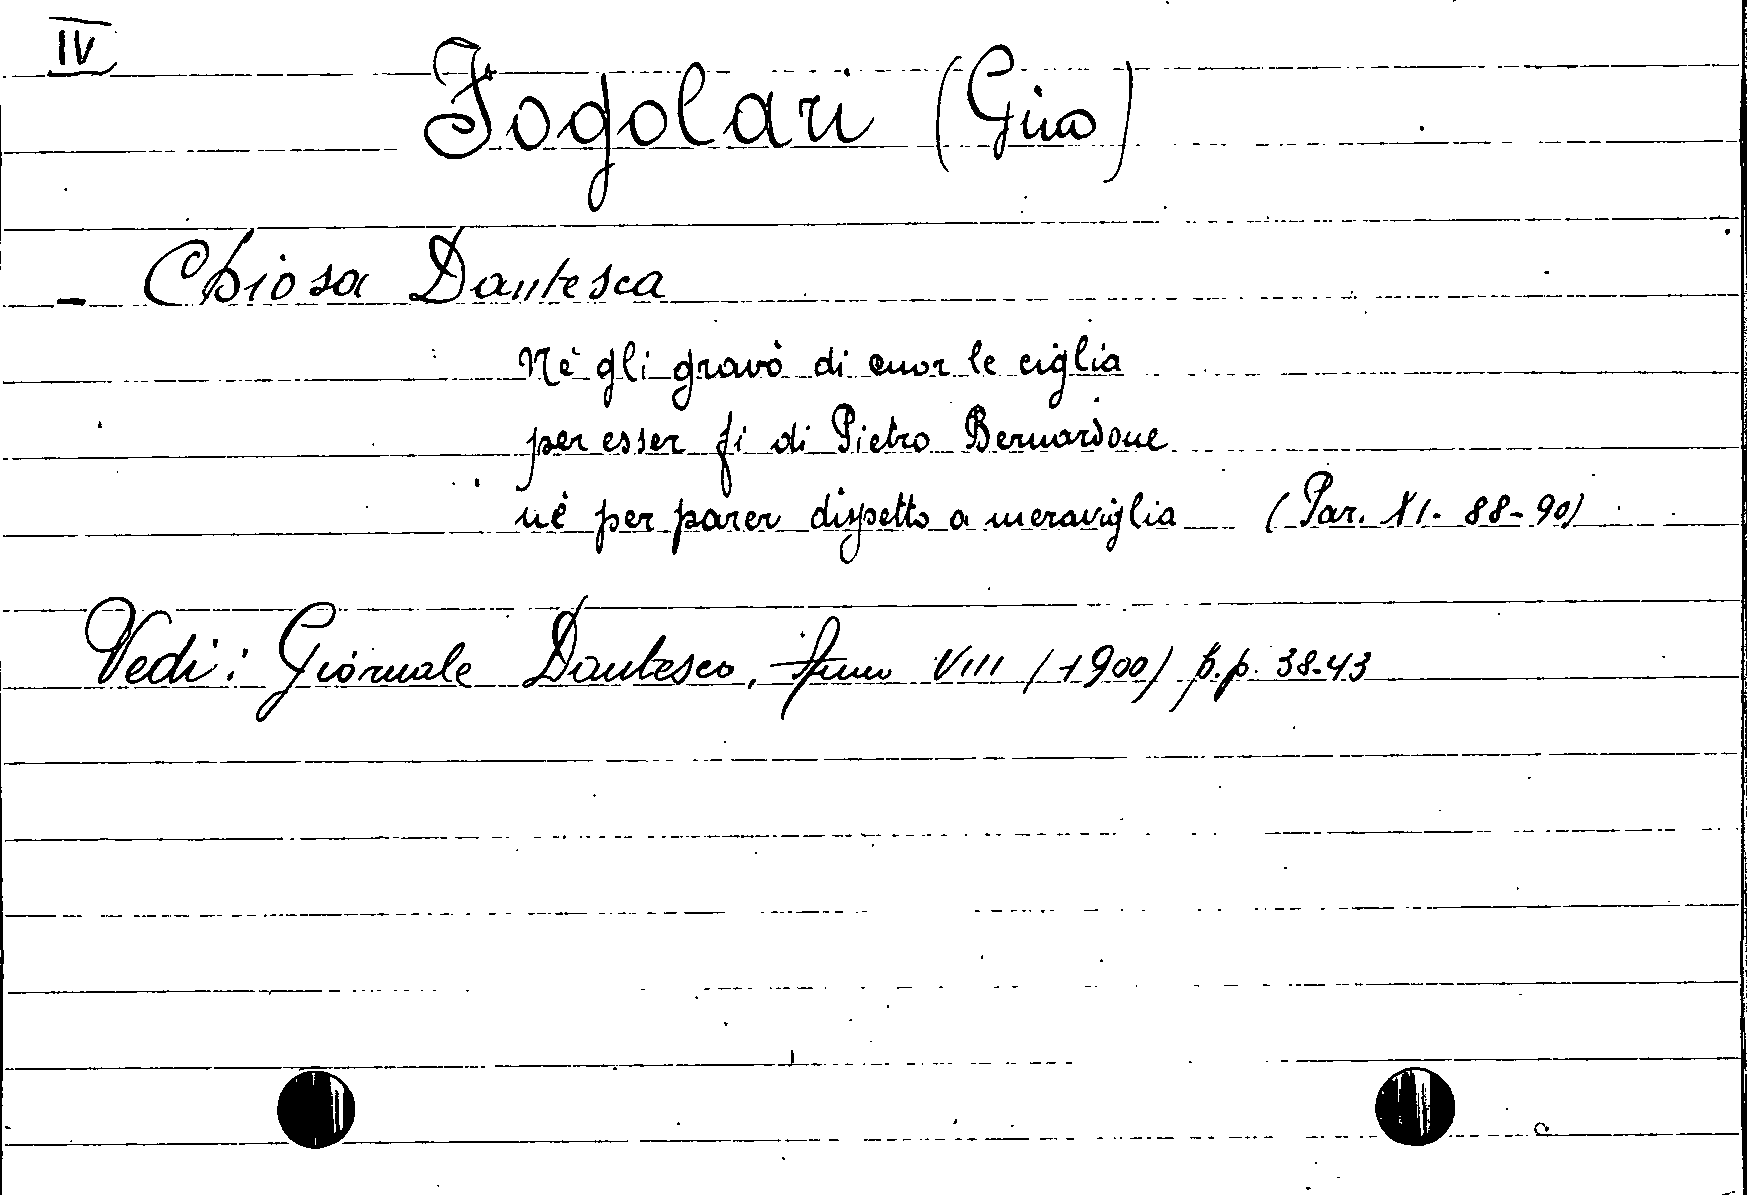 IV
Fogolari (Gino)
- Chiosa Dantesca
Nè gli gravò di cuor le ciglia
per esser fi di Pietro Bernardone
nè per parer dispetto a meraviglia (Par. XI. 88-90)
Vedi: Giornale Dantesco, Anno VIII (1900) p.p. 38-43